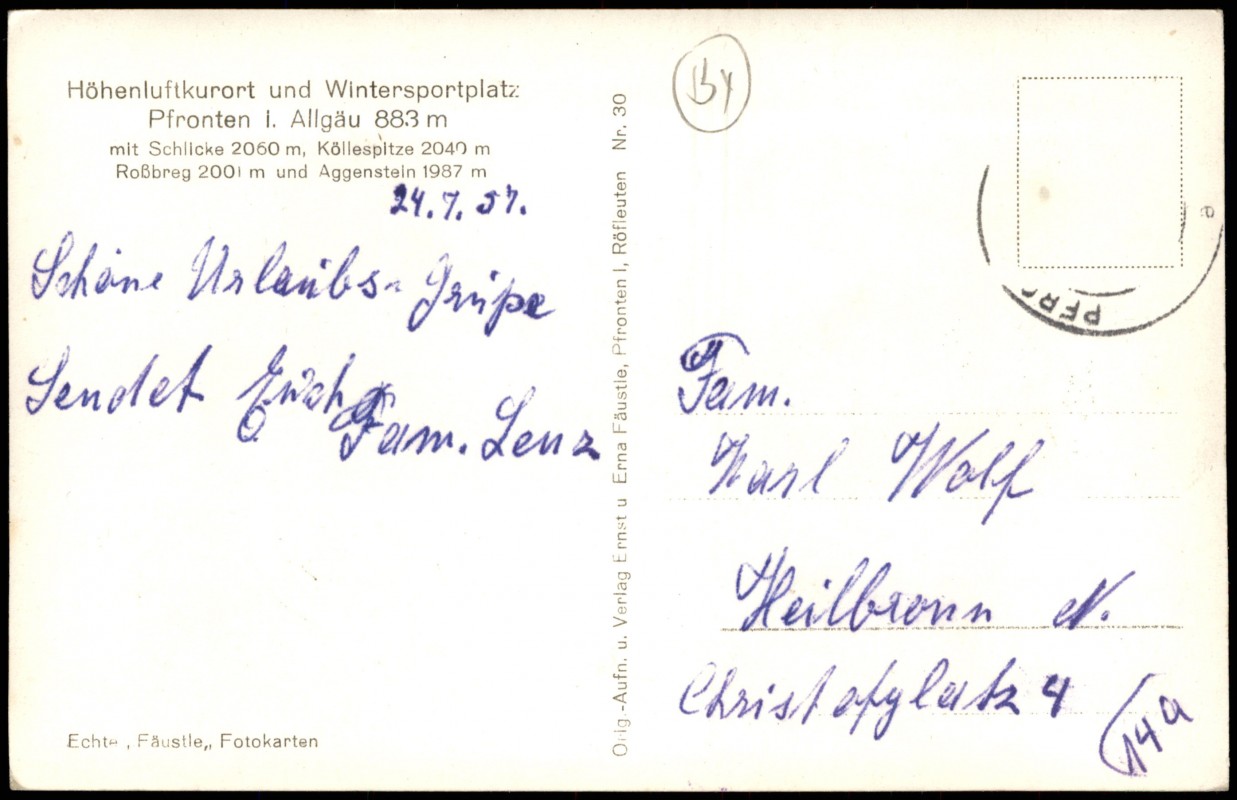 Höhenluftkurort und Wintersportplatz
Pfronten i. Allgäu 883 m
mit Schlicke 2060 m, Köllespitze 2040 m
Roßbreg 2001 m und Aggenstein 1987 m
24.7.57.
Schöne Urlaubs-Grüße
Sendet Euch
Fam. Lenz
Echte „Fäustle„ Fotokarten
Orig.-Aufn. u. Verlag Ernst u Erna Fäustle, Pfronten I, Röfleuten Nr. 30
By
PFRO
Fam.
Karl Wolf
Heilbronn N.
Christofplatz 4
(14a